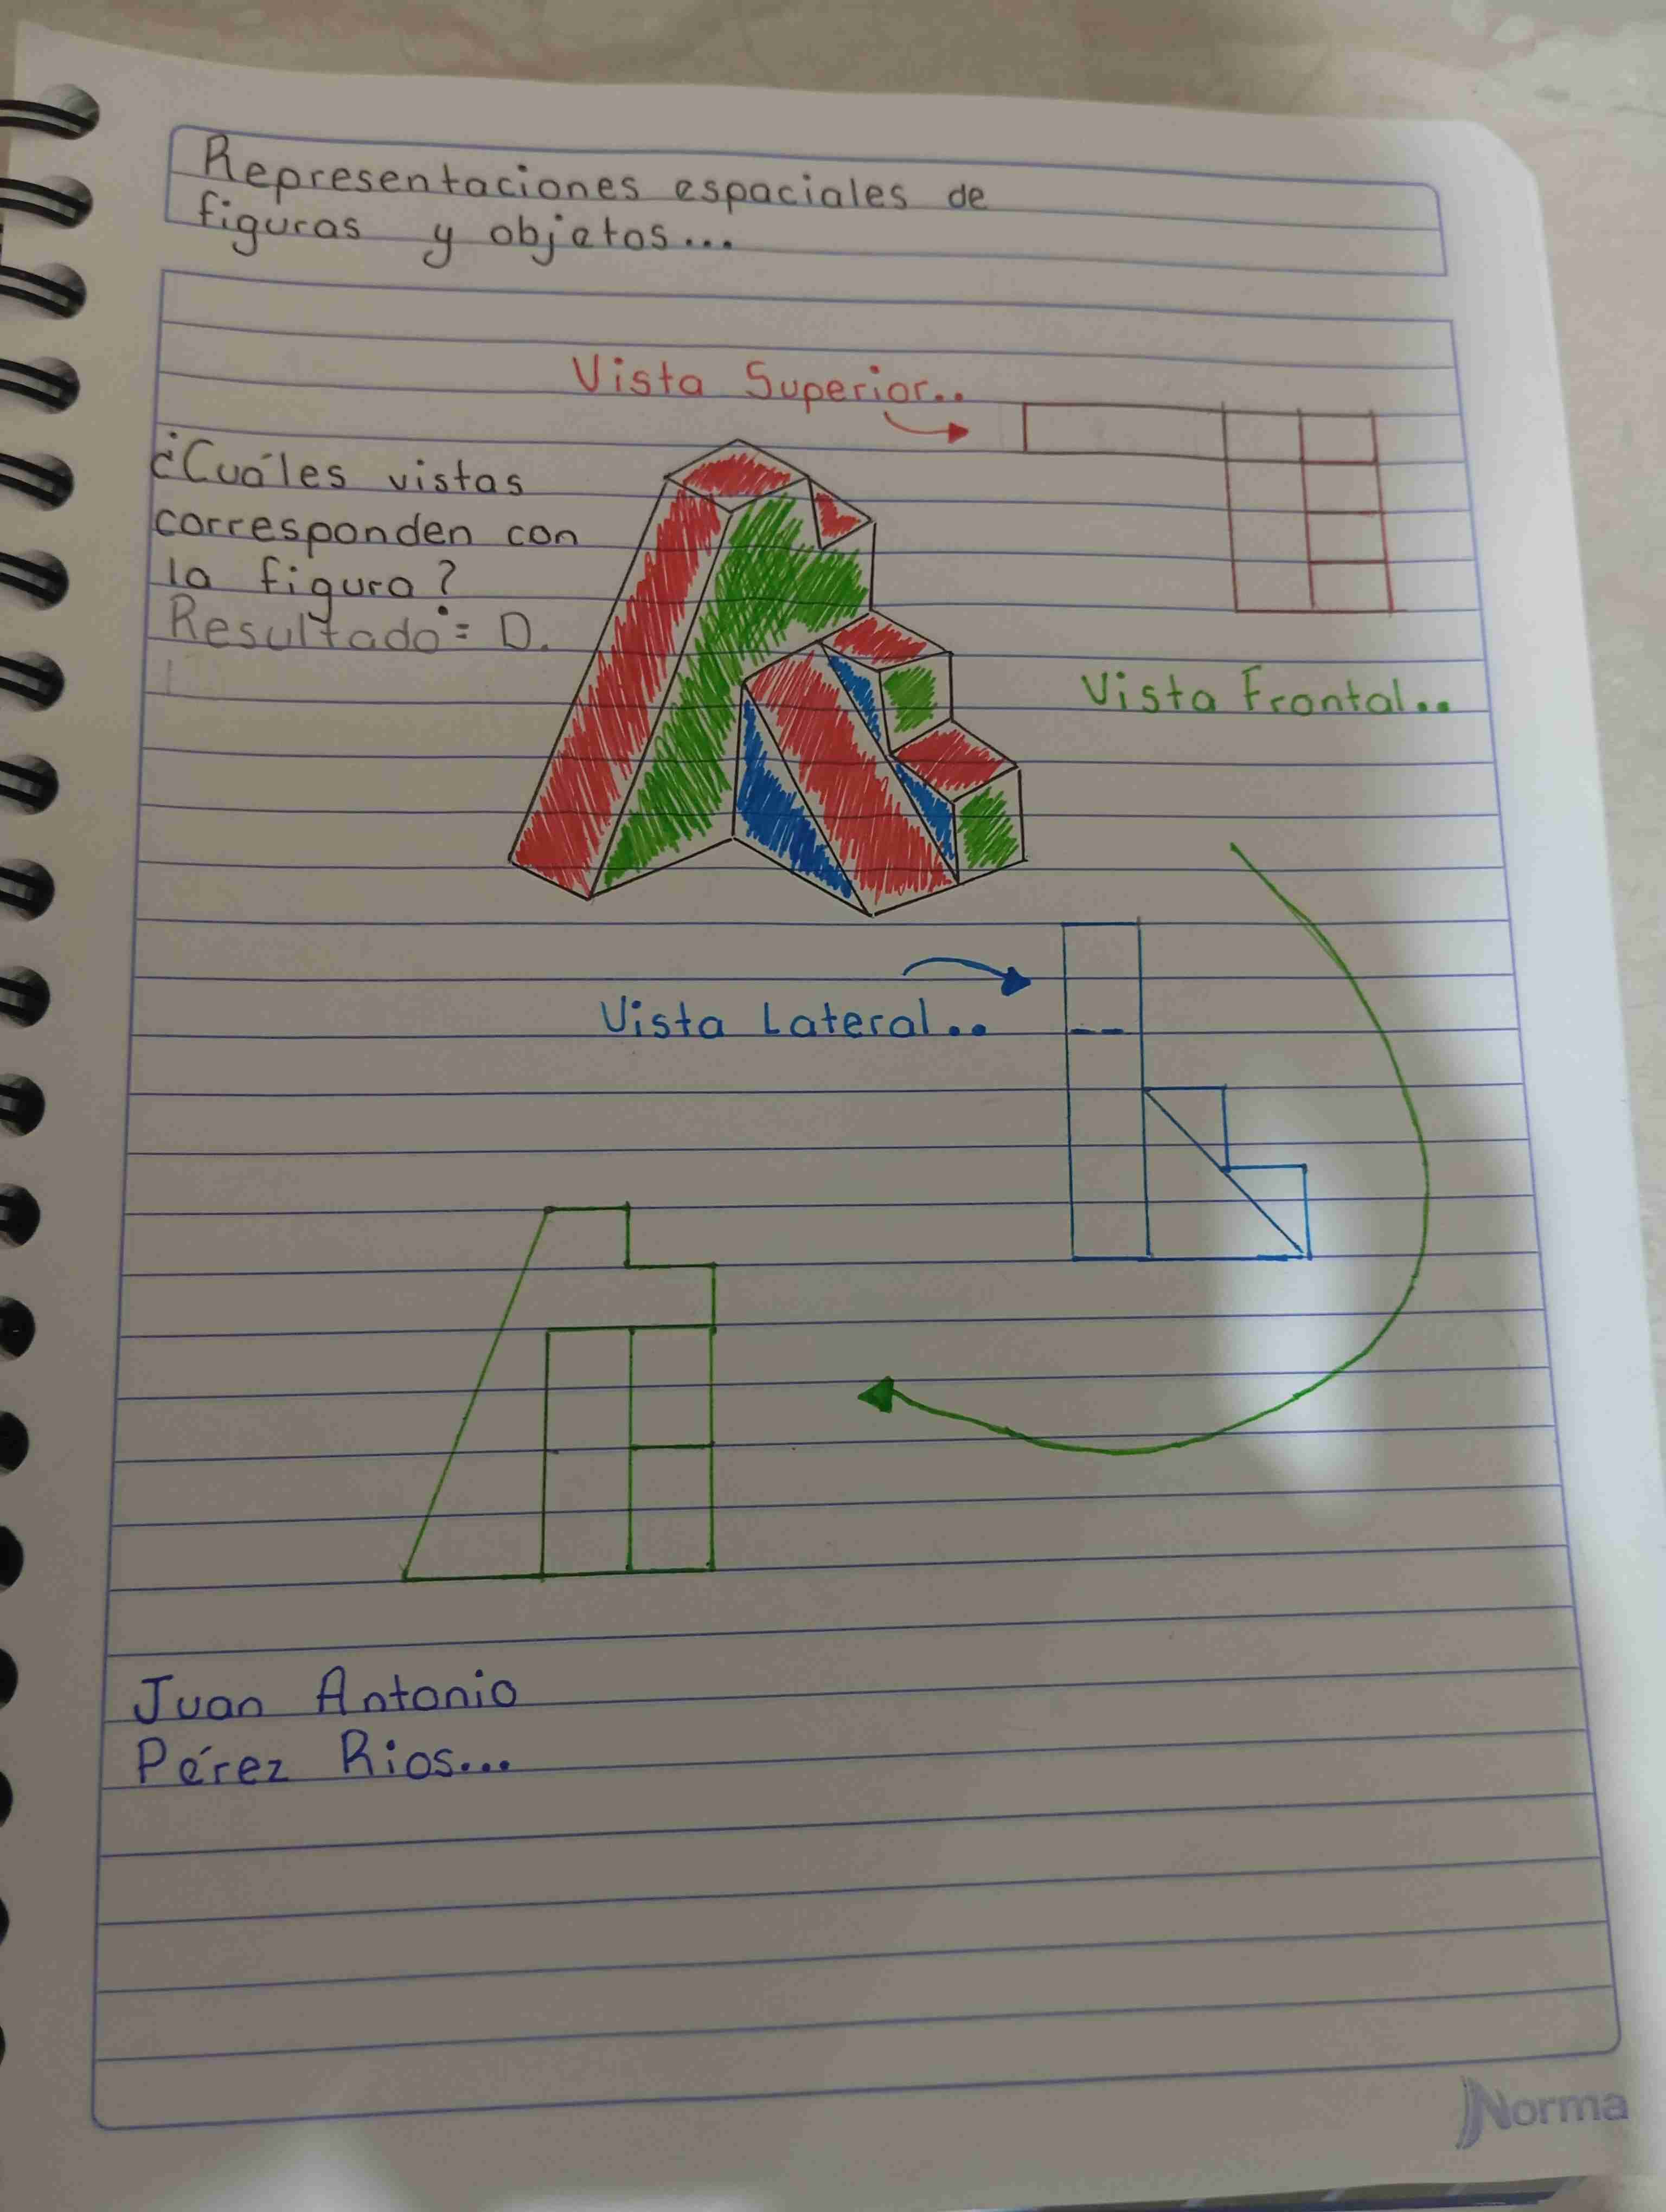 Representaciones espaciales de
figuras y objetos...
Vista Superior..
¿Cuáles vistas
corresponden con
la figura?
Resultado = D.
Vista Frontal..
Vista Lateral..
Juan Antonio
Pérez Rios...
Norma